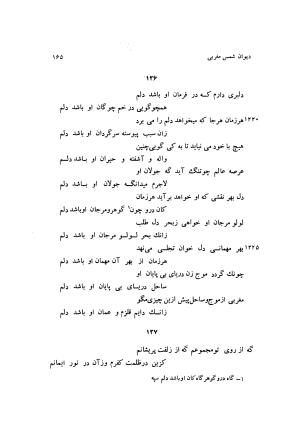 دیوان شمس مغربی
۱۶۵
۱۳۶
دلبری دارم که در فرمان او باشد دلم
همچو گویی در خم چوگان او باشد دلم
۱۲۳۰ هرزمان هرجا که میخواهد دلم را می برد
زان سبب پیوسته سرگردان او باشد دلم
هیچ با خود می نیابد تا به کی گویی‌چنین
واله و آشفته و حیران او باشد دلم
عرصه عالم چوتنگ آید گه جولان او
لاجرم میدانگه جولان او باشد دلم
دل بهر نقشی که او خواهد برآید هرزمان
کان رو چون ٔ گوهر و مرجان او باشد دلم
لولو مرجان او خواهی زبحر دل طلب
زانك بحر لولو مرجان او باشد دلم
۱۲۳۵ بهر مهمانی دل خوان تجلی می‌نهد
هرزمان از بهر آن مهمان او باشد دلم
چونك گردد موج زن دریای بی پایان او
ساحل دریای بی پایان او باشد دلم
مغربی ازموج وساحل بیش ازین چیزی‌مگو
زانك دایم قلزم و عمان او باشد دلم
۱۳۷
گه از روی تو مجموعم گه از زلفت پریشانم
کزین درظلمت کفرم وزآن در نور ایمانم
۱ـ گاه درو گوهر گاه کان او باشد دلم سپه